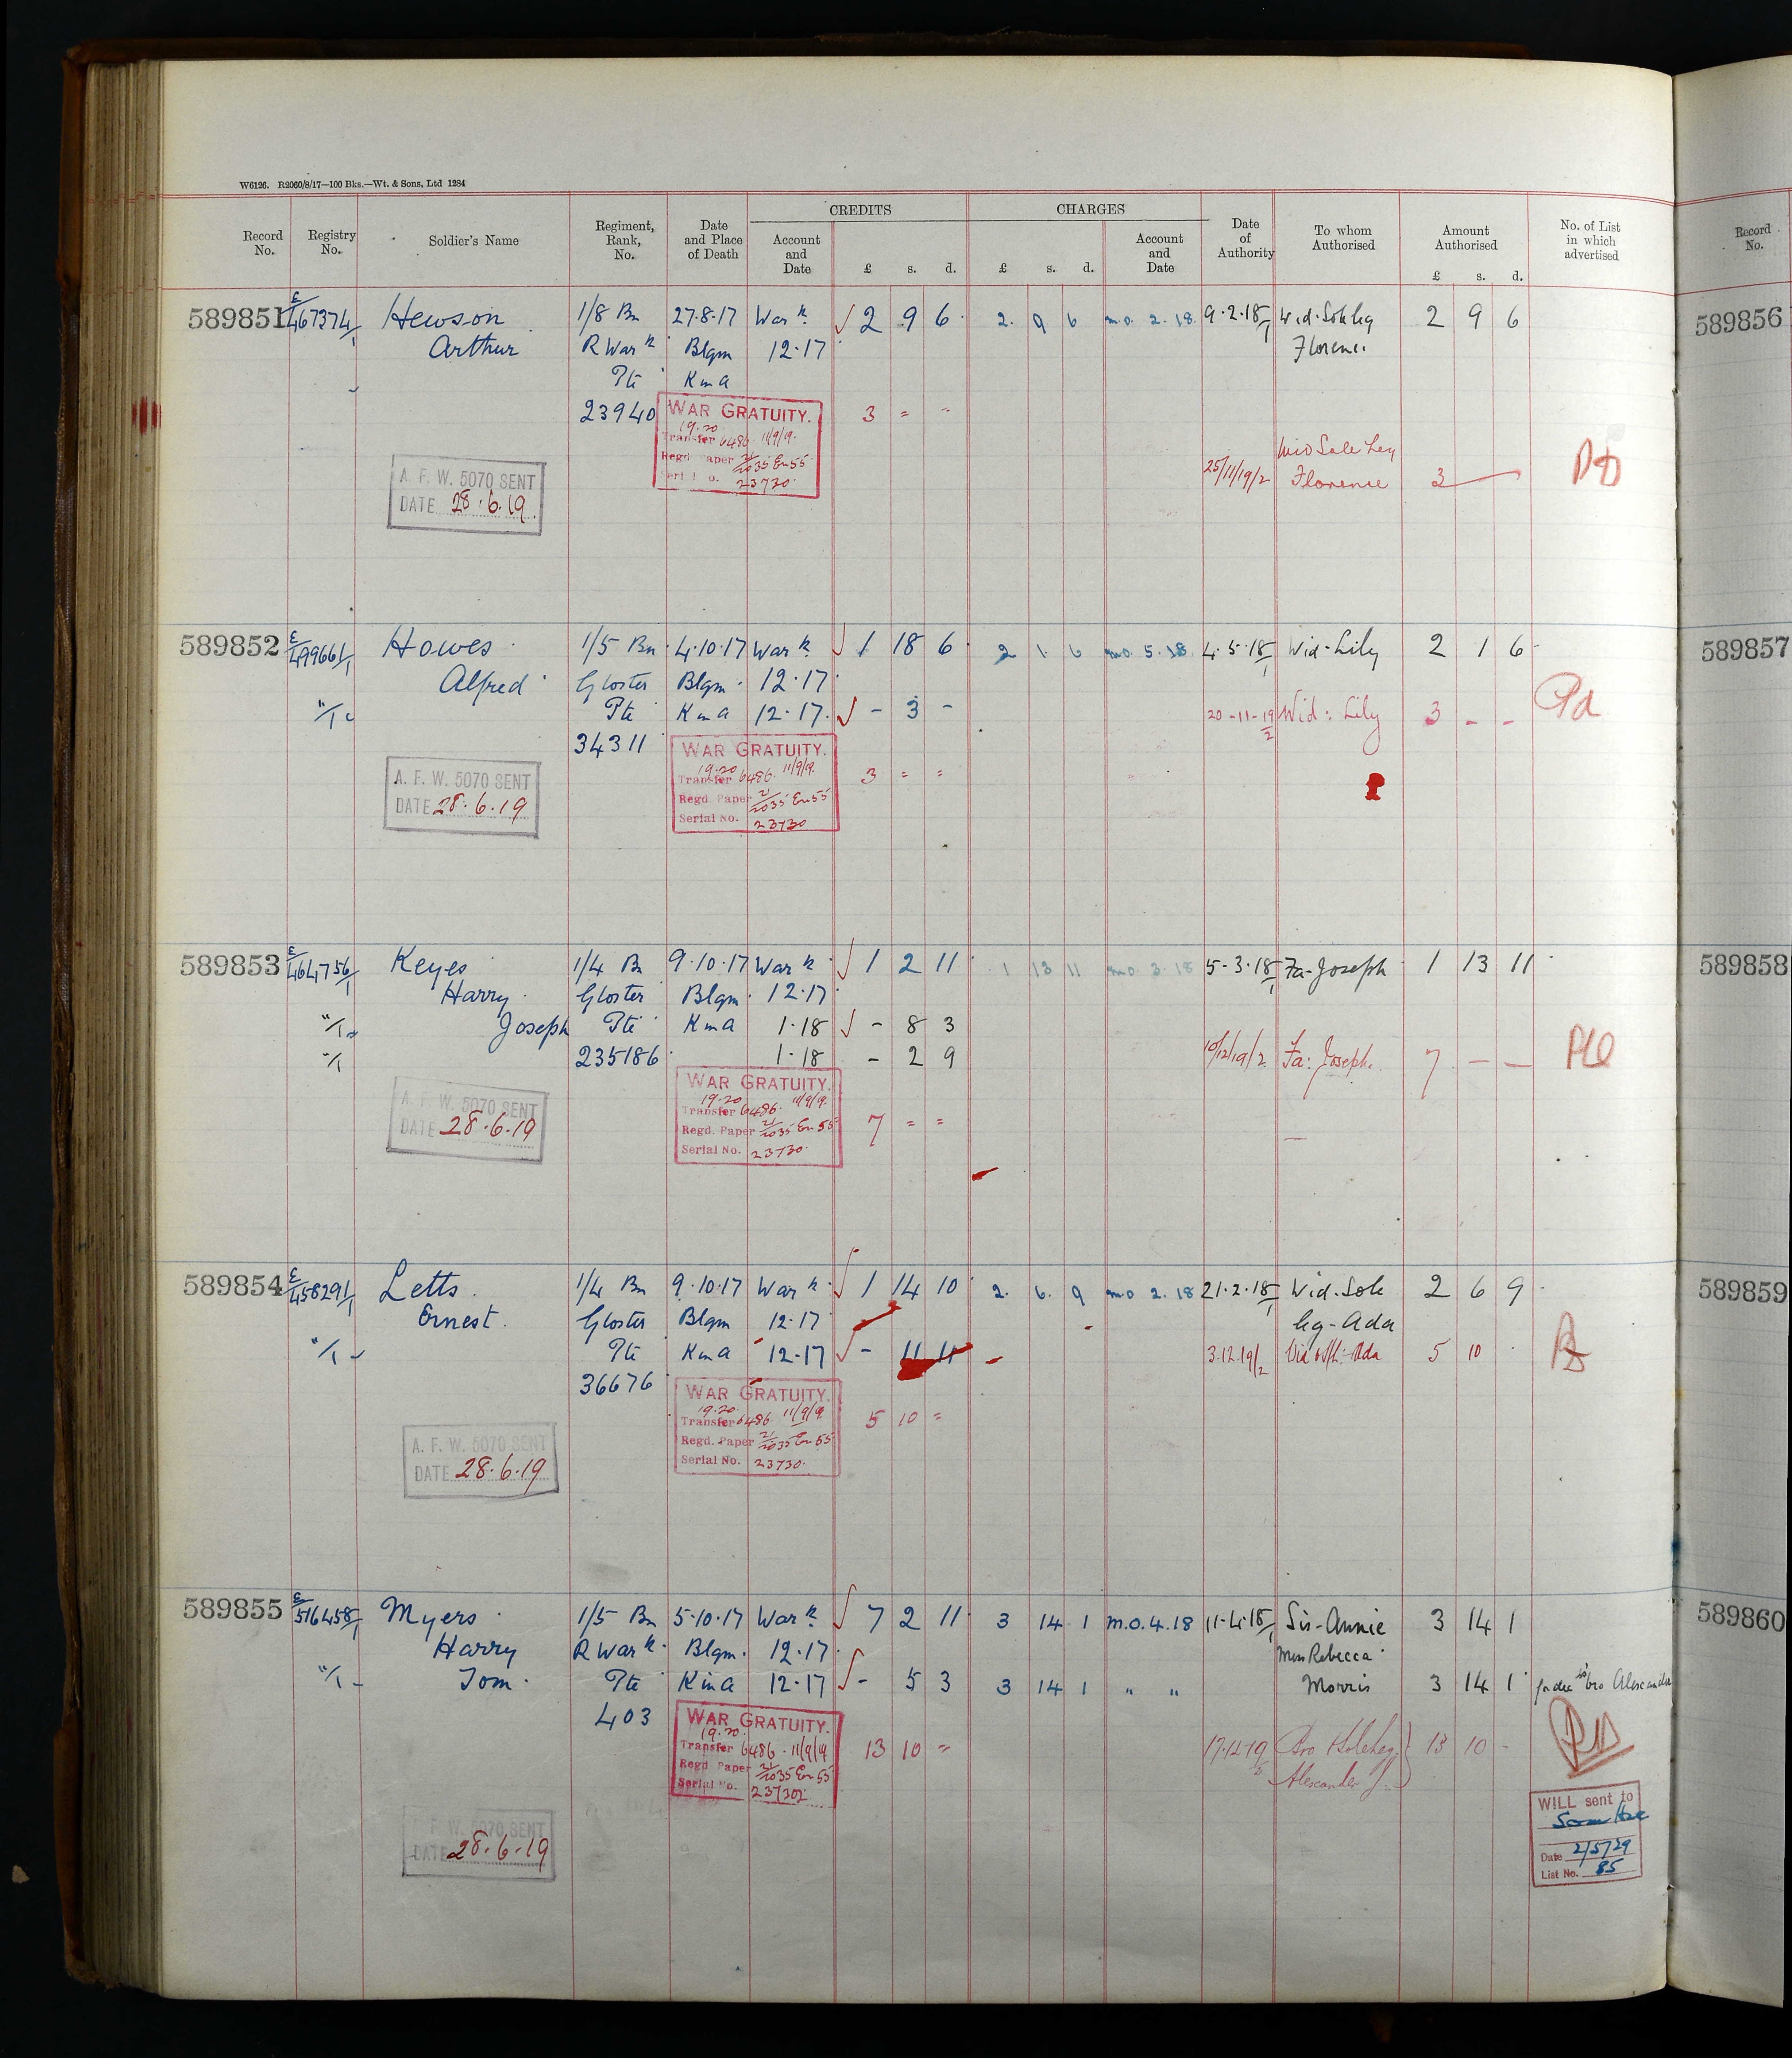 W6126. R2060/8/17—100 Bks.—Wt. & Sons, Ltd 1284
Record No. Registry No. Soldier's Name Regiment, Rank, No. Date and Place of Death CREDITS Account and Date £ s. d. CHARGES £ s. d. Account and Date Date of Authority To whom Authorised Amount Authorised £ s. d. No. of List in which advertised Record No.
589851 E/467374/1 Hewson 1/8 Bn 27.8.17 War k. 2 9 6 2. 9 6 m.o. 2.18 9.2.18/1 Wid. Sole leg 2 9 6 589856
Arthur R War k Blgm 12.17 Florence
Pte K in A
23940 WAR GRATUITY. 3 = -
19.20
Transfer 6486 11/9/19.
Regd Paper 21/2035 En 55
Serial No. 23730
Wid Sole Leg
25/11/19/2 Florence 3 PD
A. F. W. 5070 SENT
DATE 28.6.19
589852 E/499661/1 Howes 1/5 Bn 4.10.17 War k. 1 18 6 2 1. 6 m.o. 5.18 4.5.18/1 Wid. Lily 2 1 6 589857
Alfred Gloster Blgm. 12.17
"/1 Pte K in A 12.17. - 3 - 20-11-19/2 Wid: Lily 3 - - Pd
34311
WAR GRATUITY. 3 = =
19.20
Transfer 6486. 11/9/19.
Regd. Paper 21/2035 En 55
Serial No. 23730
A. F. W. 5070 SENT
DATE 28.6.19
589853 E/464756/1 Keyes 1/4 Bn 9.10.17 War k. 1 2 11 1 13 11 m.o. 3.18 5.3.18/1 Fa-Joseph 1 13 11 589858
Harry Gloster Blgm. 12.17
"/1 Joseph Pte K in A 1.18 - 8 3
"/1 235186 1.18 - 2 9 10/12/19/2 Fa: Joseph. 7 - -
WAR GRATUITY. 7 = =
19.20
Transfer 6486. 11/9/19.
Regd. Paper 21/2035 En 55
Serial No. 23730.
A. F. W. 5070 SENT
DATE 28.6.19
589854 E/458291/1 Letts 1/4 Bn 9.10.17 War k. 1 14 10 2. 6. 9 m.o 2.18 21.2.18/1 Wid. Sole 2 6 9 589859
Ernest Gloster Blgm 12.17 leg-Ada
"/1 Pte K in A 12.17 - 11 11 3.12.19/2 Ada 5 10
36676
WAR GRATUITY. 5 10 =
19.20
Transfer 6486. 11/9/19
Regd. Paper 21/2035 En 55
Serial No. 23730.
A. F. W. 5070 SENT
DATE 28.6.19
589855 E/516458/1 Myers 1/5 Bn 5.10.17 War k. 7 2 11 3 14 1 m.o. 4.18 11.4.18/1 Sis-Annie 3 14 1 589860
Harry R War k. Blgm. 12.17 Miss Rebecca
"/1 Tom. Pte K in A 12.17 - 5 3 3 14 1 " " Morris 3 14 1 bro Alexander
403
WAR GRATUITY. 13 10 =
19.20
Transfer 6486. 11/9/19
Regd Paper 21/2035 En 55
Serial No. 23730
17.12.19 Bro Sole Leg } 13 10 -
Alexander J.
A. F. W. 5070 SENT
DATE 28.6.19
WILL sent to
Som Hse
Date 2/5/29
List No. 85